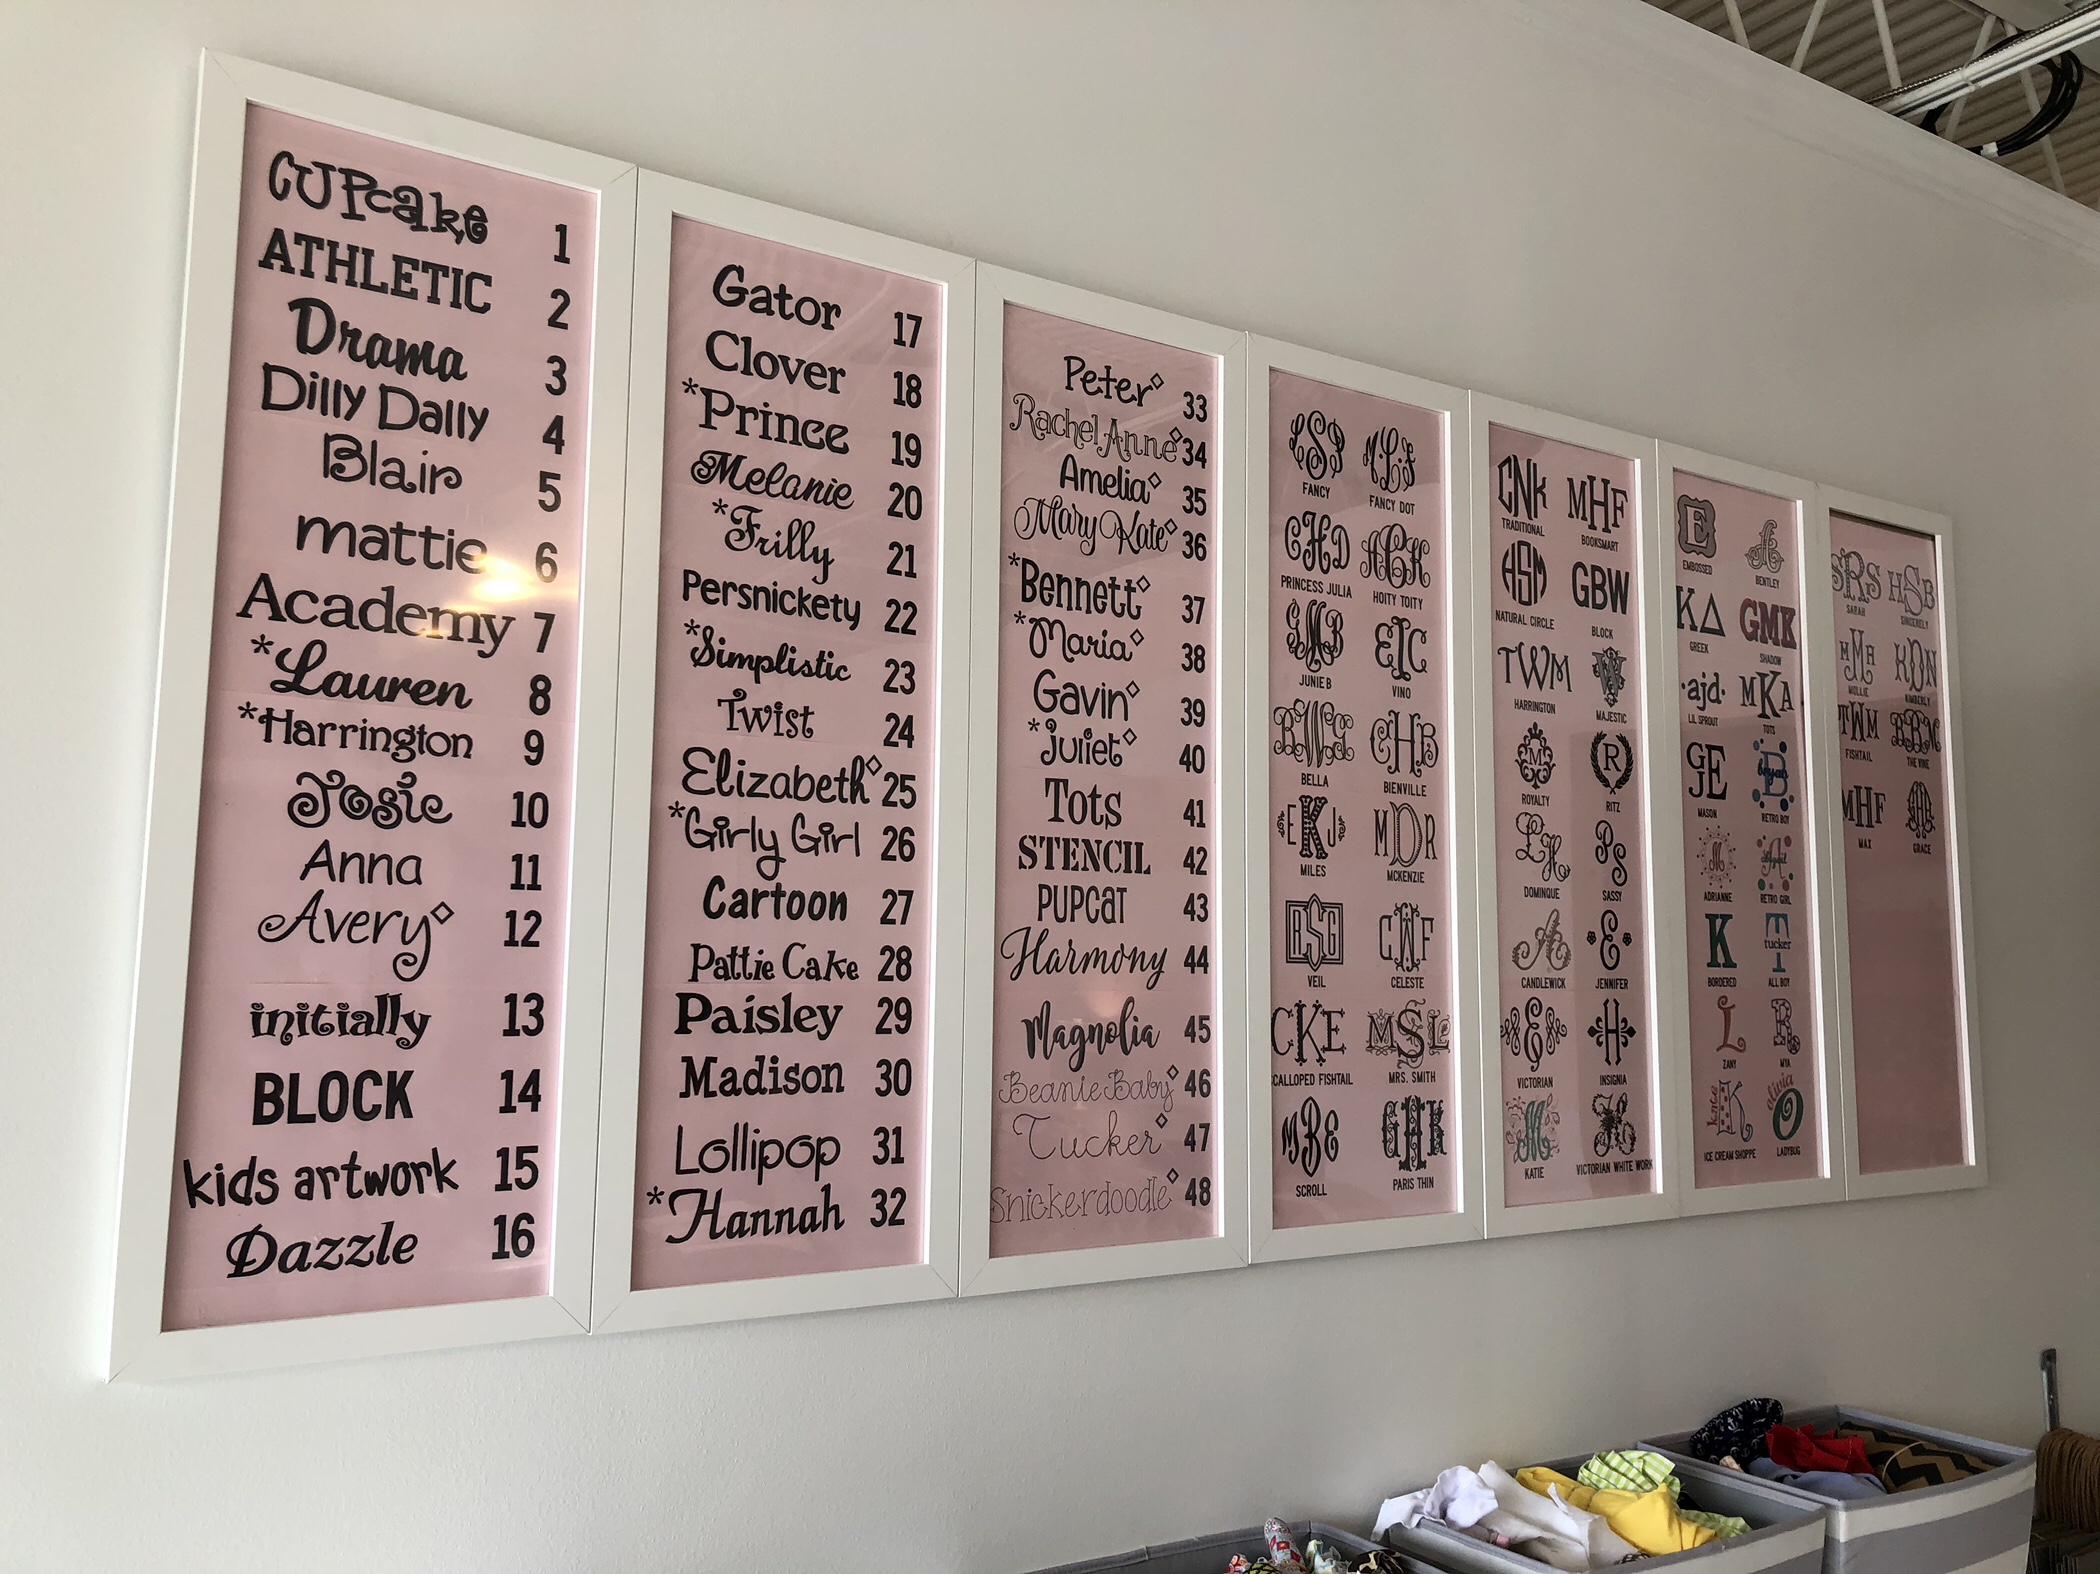 cupcake 1
ATHLETIC 2
Drama 3
Dilly Dally 4
Blair 5
mattie 6
Academy 7
*Lauren 8
*Harrington 9
Josie 10
Anna 11
Avery◇ 12
initially 13
BLOCK 14
kids artwork 15
Dazzle 16
Gator 17
Clover 18
*Prince 19
Melanie 20
*Frilly 21
Persnickety 22
*Simplistic 23
Twist 24
Elizabeth◇ 25
*Girly Girl 26
Cartoon 27
Pattie Cake 28
Paisley 29
Madison 30
Lollipop 31
*Hannah 32
Peter◇ 33
Rachel Anne◇ 34
Amelia◇ 35
Mary Kate◇ 36
*Bennett◇ 37
*Maria◇ 38
Gavin◇ 39
*Juliet◇ 40
Tots 41
STENCIL 42
PUPCAT 43
Harmony 44
Magnolia 45
Beanie Baby◇ 46
Tucker◇ 47
Snickerdoodle◇ 48
LSP MLF
FANCY FANCY DOT
CHD ACK
PRINCESS JULIA HOITY TOITY
GMB EIC
JUNIE B VINO
BWG CHB
BELLA BIENVILLE
EKJ MDR
MILES MCKENZIE
BSG CWF
VEIL CELESTE
CKE MSL
CALLOPED FISHTAIL MRS. SMITH
MBE GHK
SCROLL PARIS THIN
CNK MHF
TRADITIONAL BOOKSMART
HSM GBW
NATURAL CIRCLE BLOCK
TWM W
HARRINGTON MAJESTIC
M R
ROYALTY RITZ
LH PS
DOMINQUE SASSY
A E
CANDLEWICK JENNIFER
E H
VICTORIAN INSIGNIA
M
KATIE VICTORIAN WHITE WORK
E A
EMBOSSED BENTLEY
KΔ GMK
GREEK SHADOW
·ajd· MKA
LIL SPROUT TOTS
GJE B
MASON RETRO BOY
M A
ADRIANNE RETRO GIRL
K tucker T
BORDERED ALL BOY
L R
ZANY MYA
K olivia O
ICE CREAM SHOPPE LADYBUG
SRS HSB
SARAH SINCERELY
MMH KDN
MOLLIE KIMBERLY
TWM BBM
FISHTAIL THE VINE
MHF
MAX GRACE